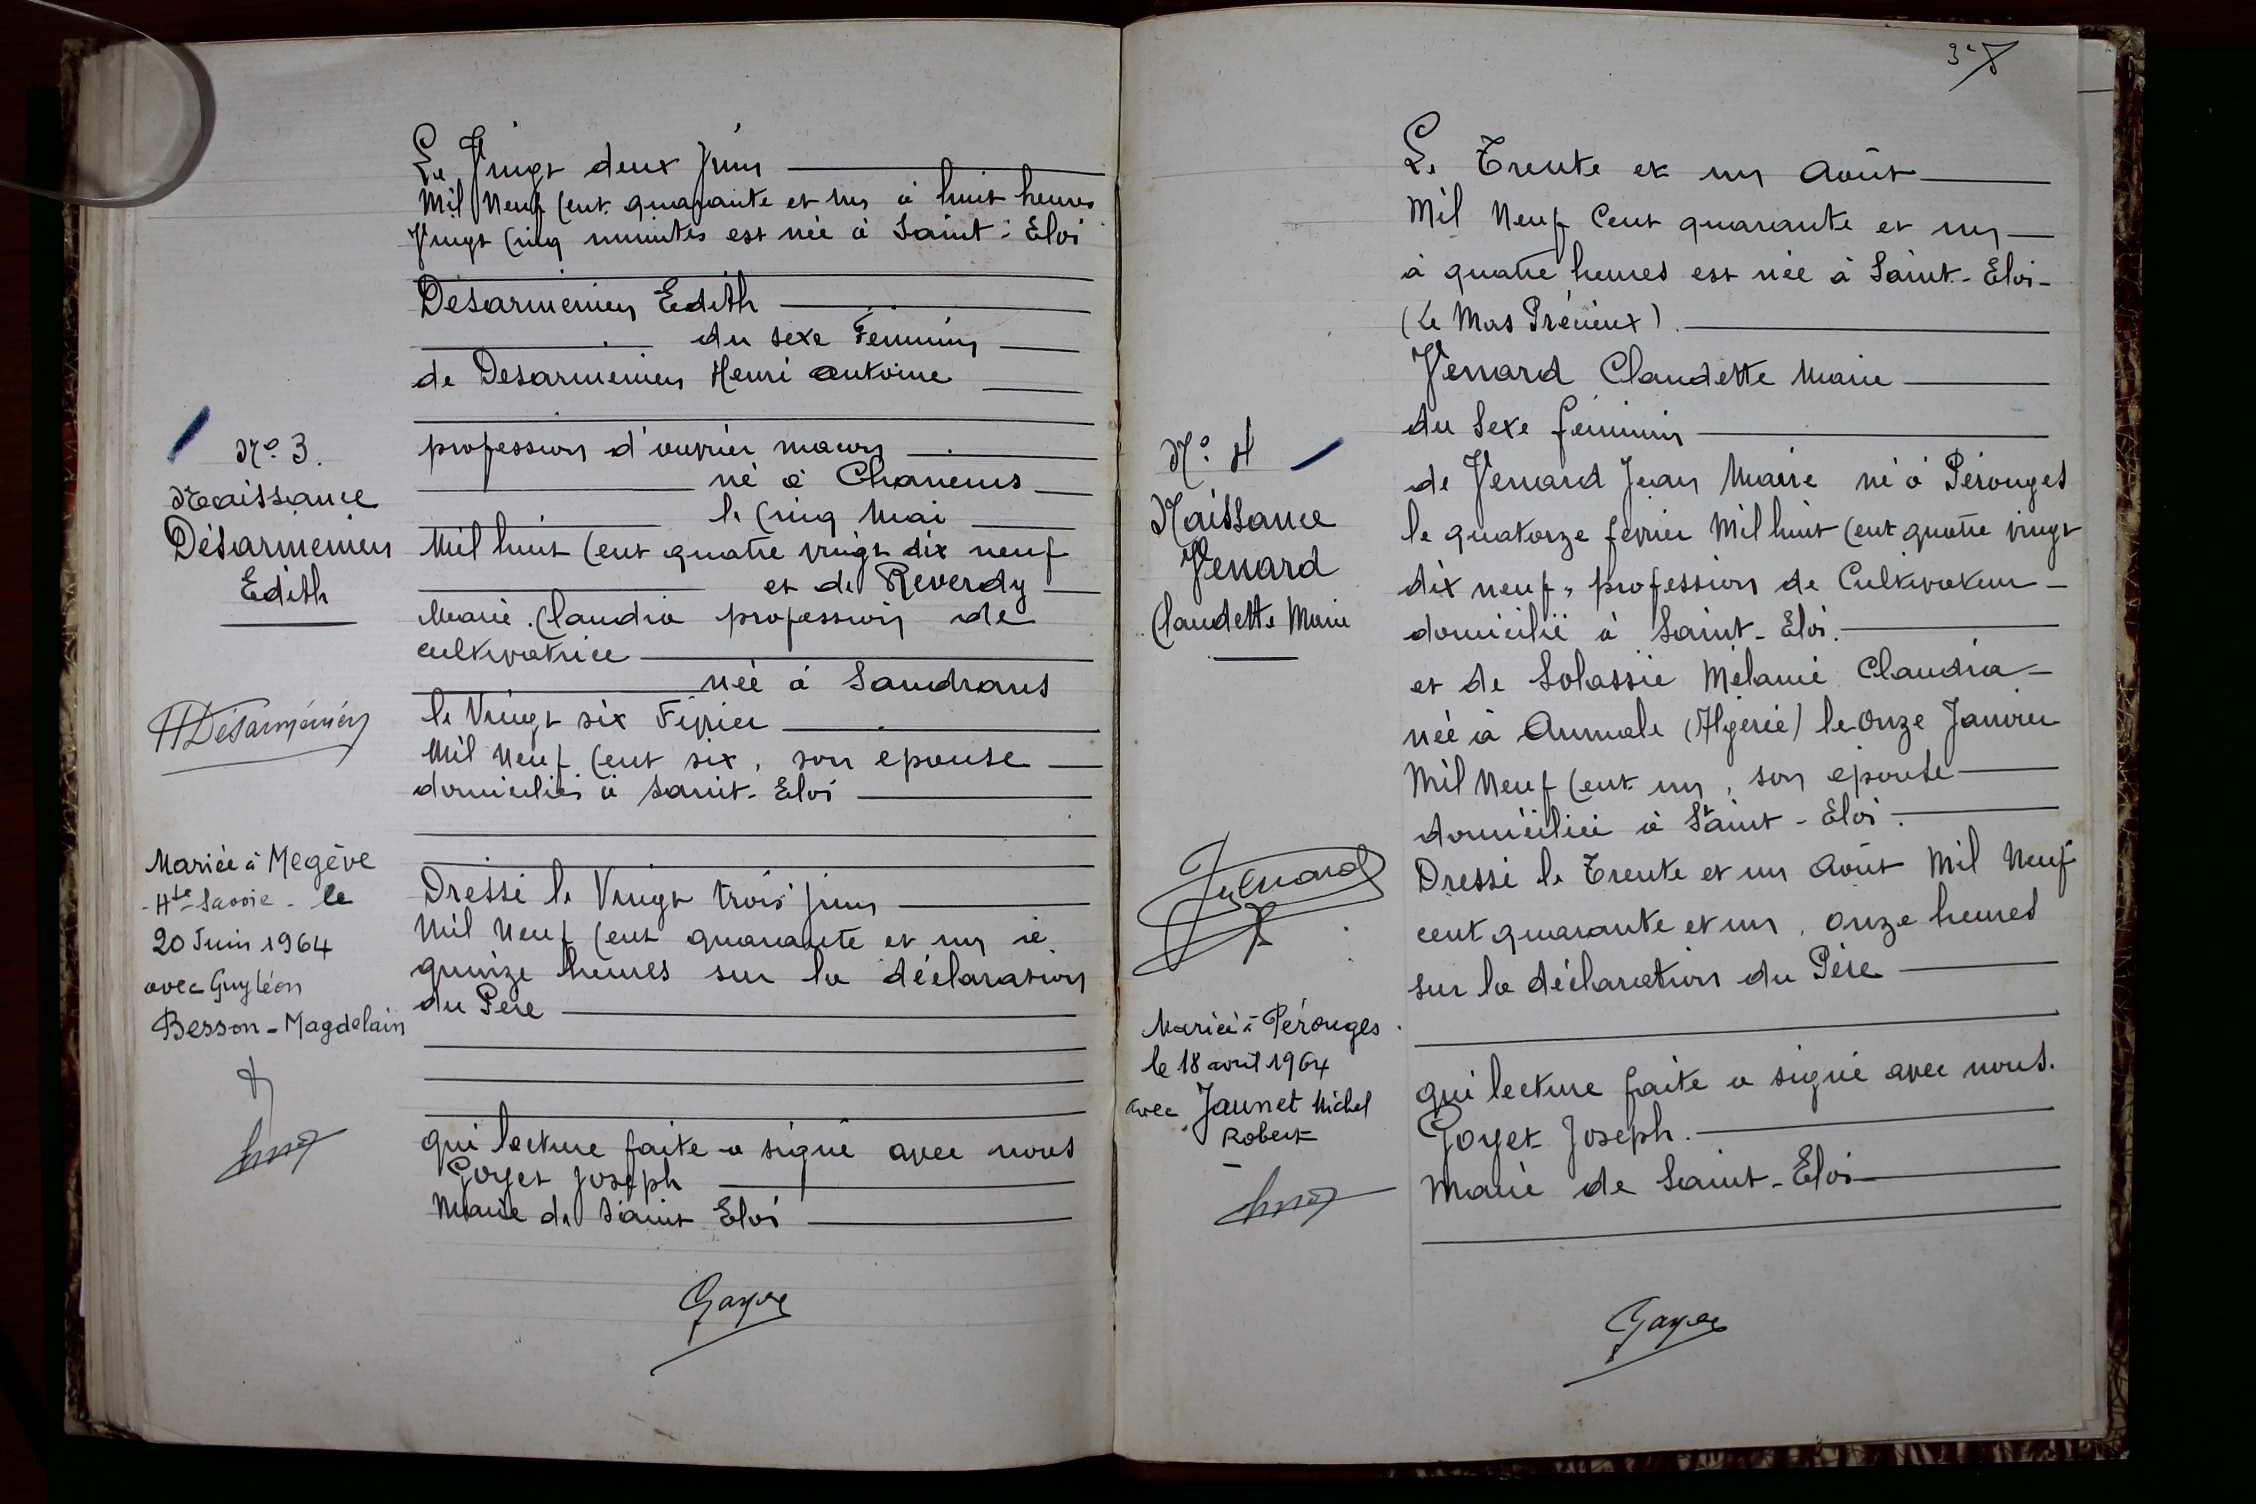 Le Vingt deux Juin
Mil Neuf Cent quarante et un à huit heures
Vingt Cinq minutes est née à Saint-Eloi
Desarmenien Edith
du sexe Feminin
de Desarmenien Henri Antoine
N° 3.
Naissance
Désarmenien
Edith
profession d'ouvrier maçon
né à Chaneins
le Cinq Mai
Mil huit Cent quatre vingt dix neuf
et de Reverdy
Marie Claudia profession de
cultivatrice
née à Sandrans
le Vingt six Février
Mil Neuf Cent six, son epouse
domiciliés à Saint-Eloi
HDésarménien
Mariée à Megève
-Hte-Savoie- le
20 Juin 1964
avec Guy Léon
Besson-Magdelain
Dressé le Vingt trois juin
Mil Neuf Cent quarante et un à
quinze heures sur la déclaration
du Père
qui lecture faite a signé avec nous
Goyet Joseph
Maire de Saint Eloi
Goyet
Le Trente et un Août
Mil Neuf Cent quarante et un
à quatre heures est née à Saint-Eloi-
(Le Mas Prévieux).
Venard Claudette Marie
du Sexe féminin
N° 4
Naissance
Venard
Claudette Marie
de Venard Jean Marie né à Pérouges
le quatorze fevrier Mil huit Cent quatre vingt
dix neuf, profession de Cultivateur
domicilié à Saint-Eloi.
et de Solassie Mélanie Claudia
née à Aumale (Algérie) le Onze Janvier
Mil Neuf Cent un, son epouse
domiciliée à Saint-Eloi.
Dressé le Trente et un Août Mil Neuf
cent quarante et un, Onze heures
sur la déclaration du Père
Venard
Mariée à Pérouges
le 18 avril 1964
avec Jaunet Michel
Robert
qui lecture faite a signé avec nous.
Goyet Joseph.
Maire de Saint-Eloi
Goyet